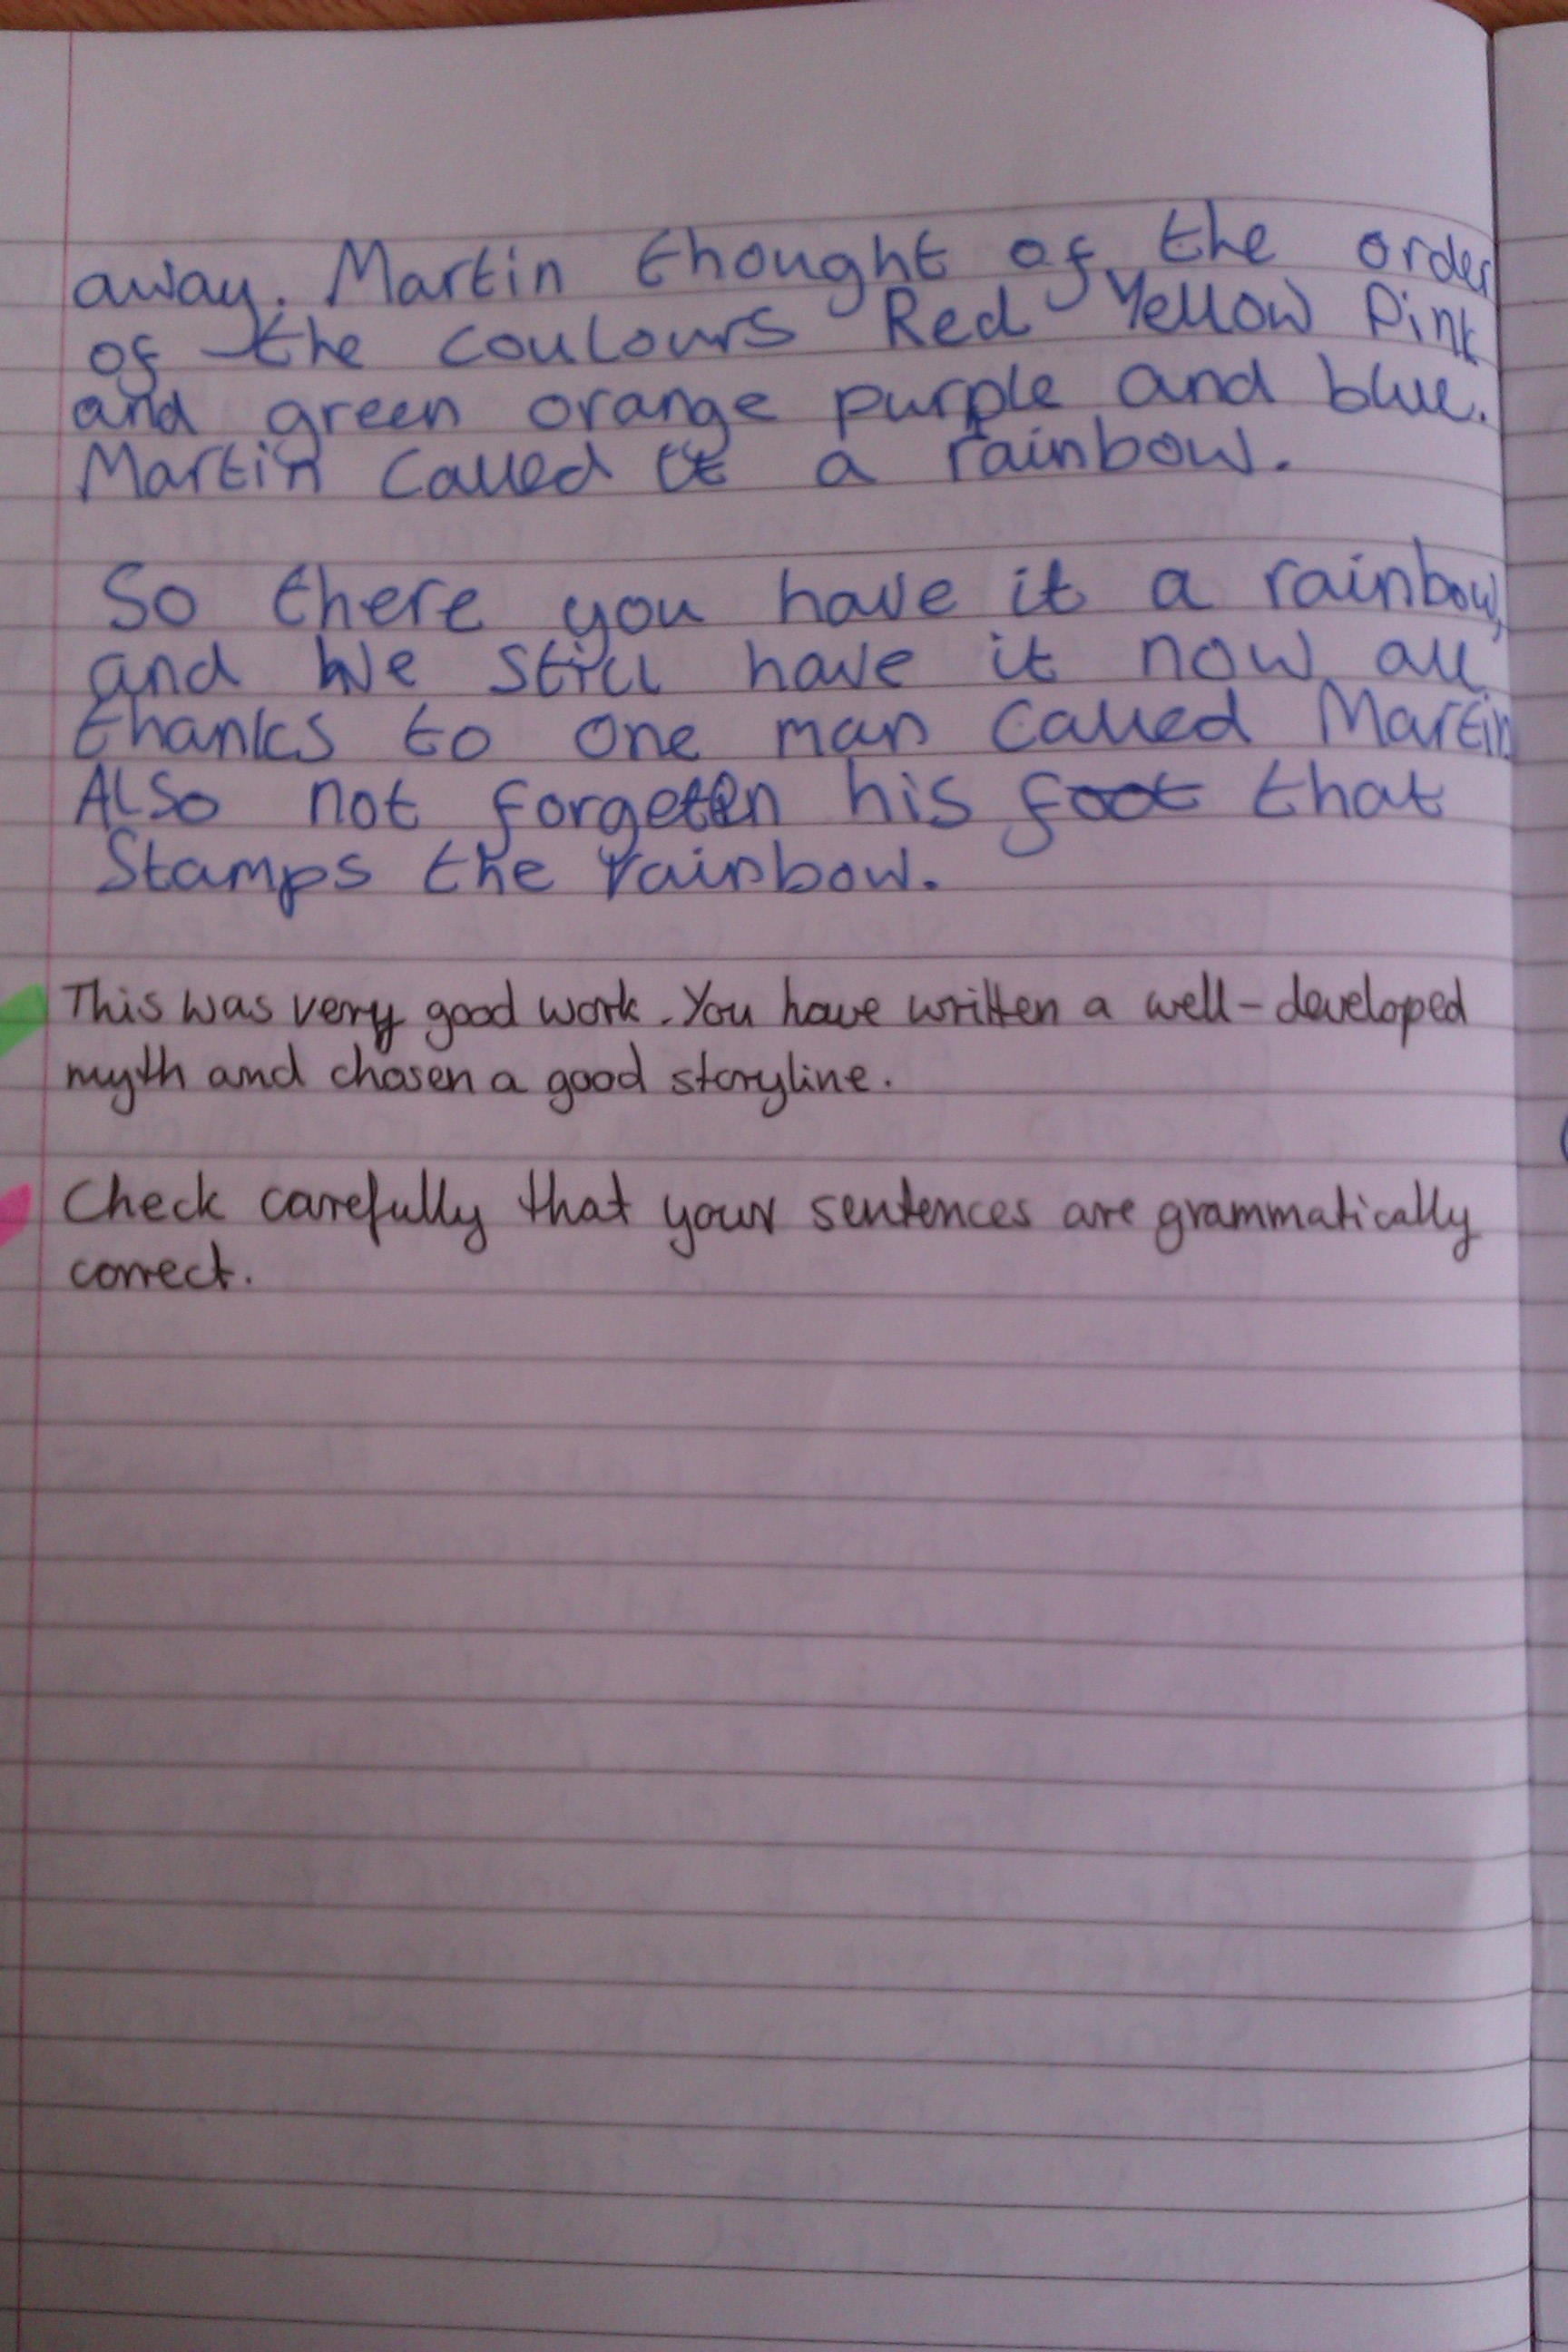 away. Martin thought of the order
of the coulours Red Yellow Pink
and green orange purple and blue.
Martin called it a rainbow.
So there you have it a rainbow,
and we still have it now all
thanks to one man called Martin
Also not forgeten his foot that
Stamps the rainbow.
This was very good work. You have written a well-developed
myth and chosen a good storyline.
Check carefully that your sentences are grammatically
correct.